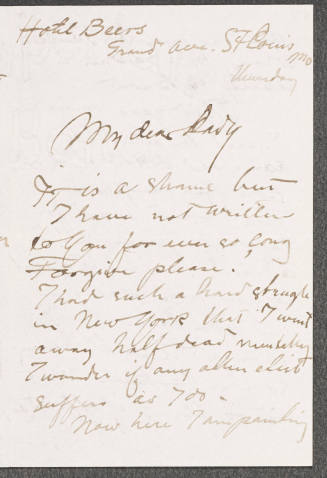 Hotel Beers
Grand Ave. St Louis
Mo
Thursday
My dear Lady
It is a shame but
I have not written
to You for ever so long
Forgive please.
I had such a hard struggle
in New York that I went
away half dead mentally
I wonder if any other
suffers as I do -
Now here I am painting